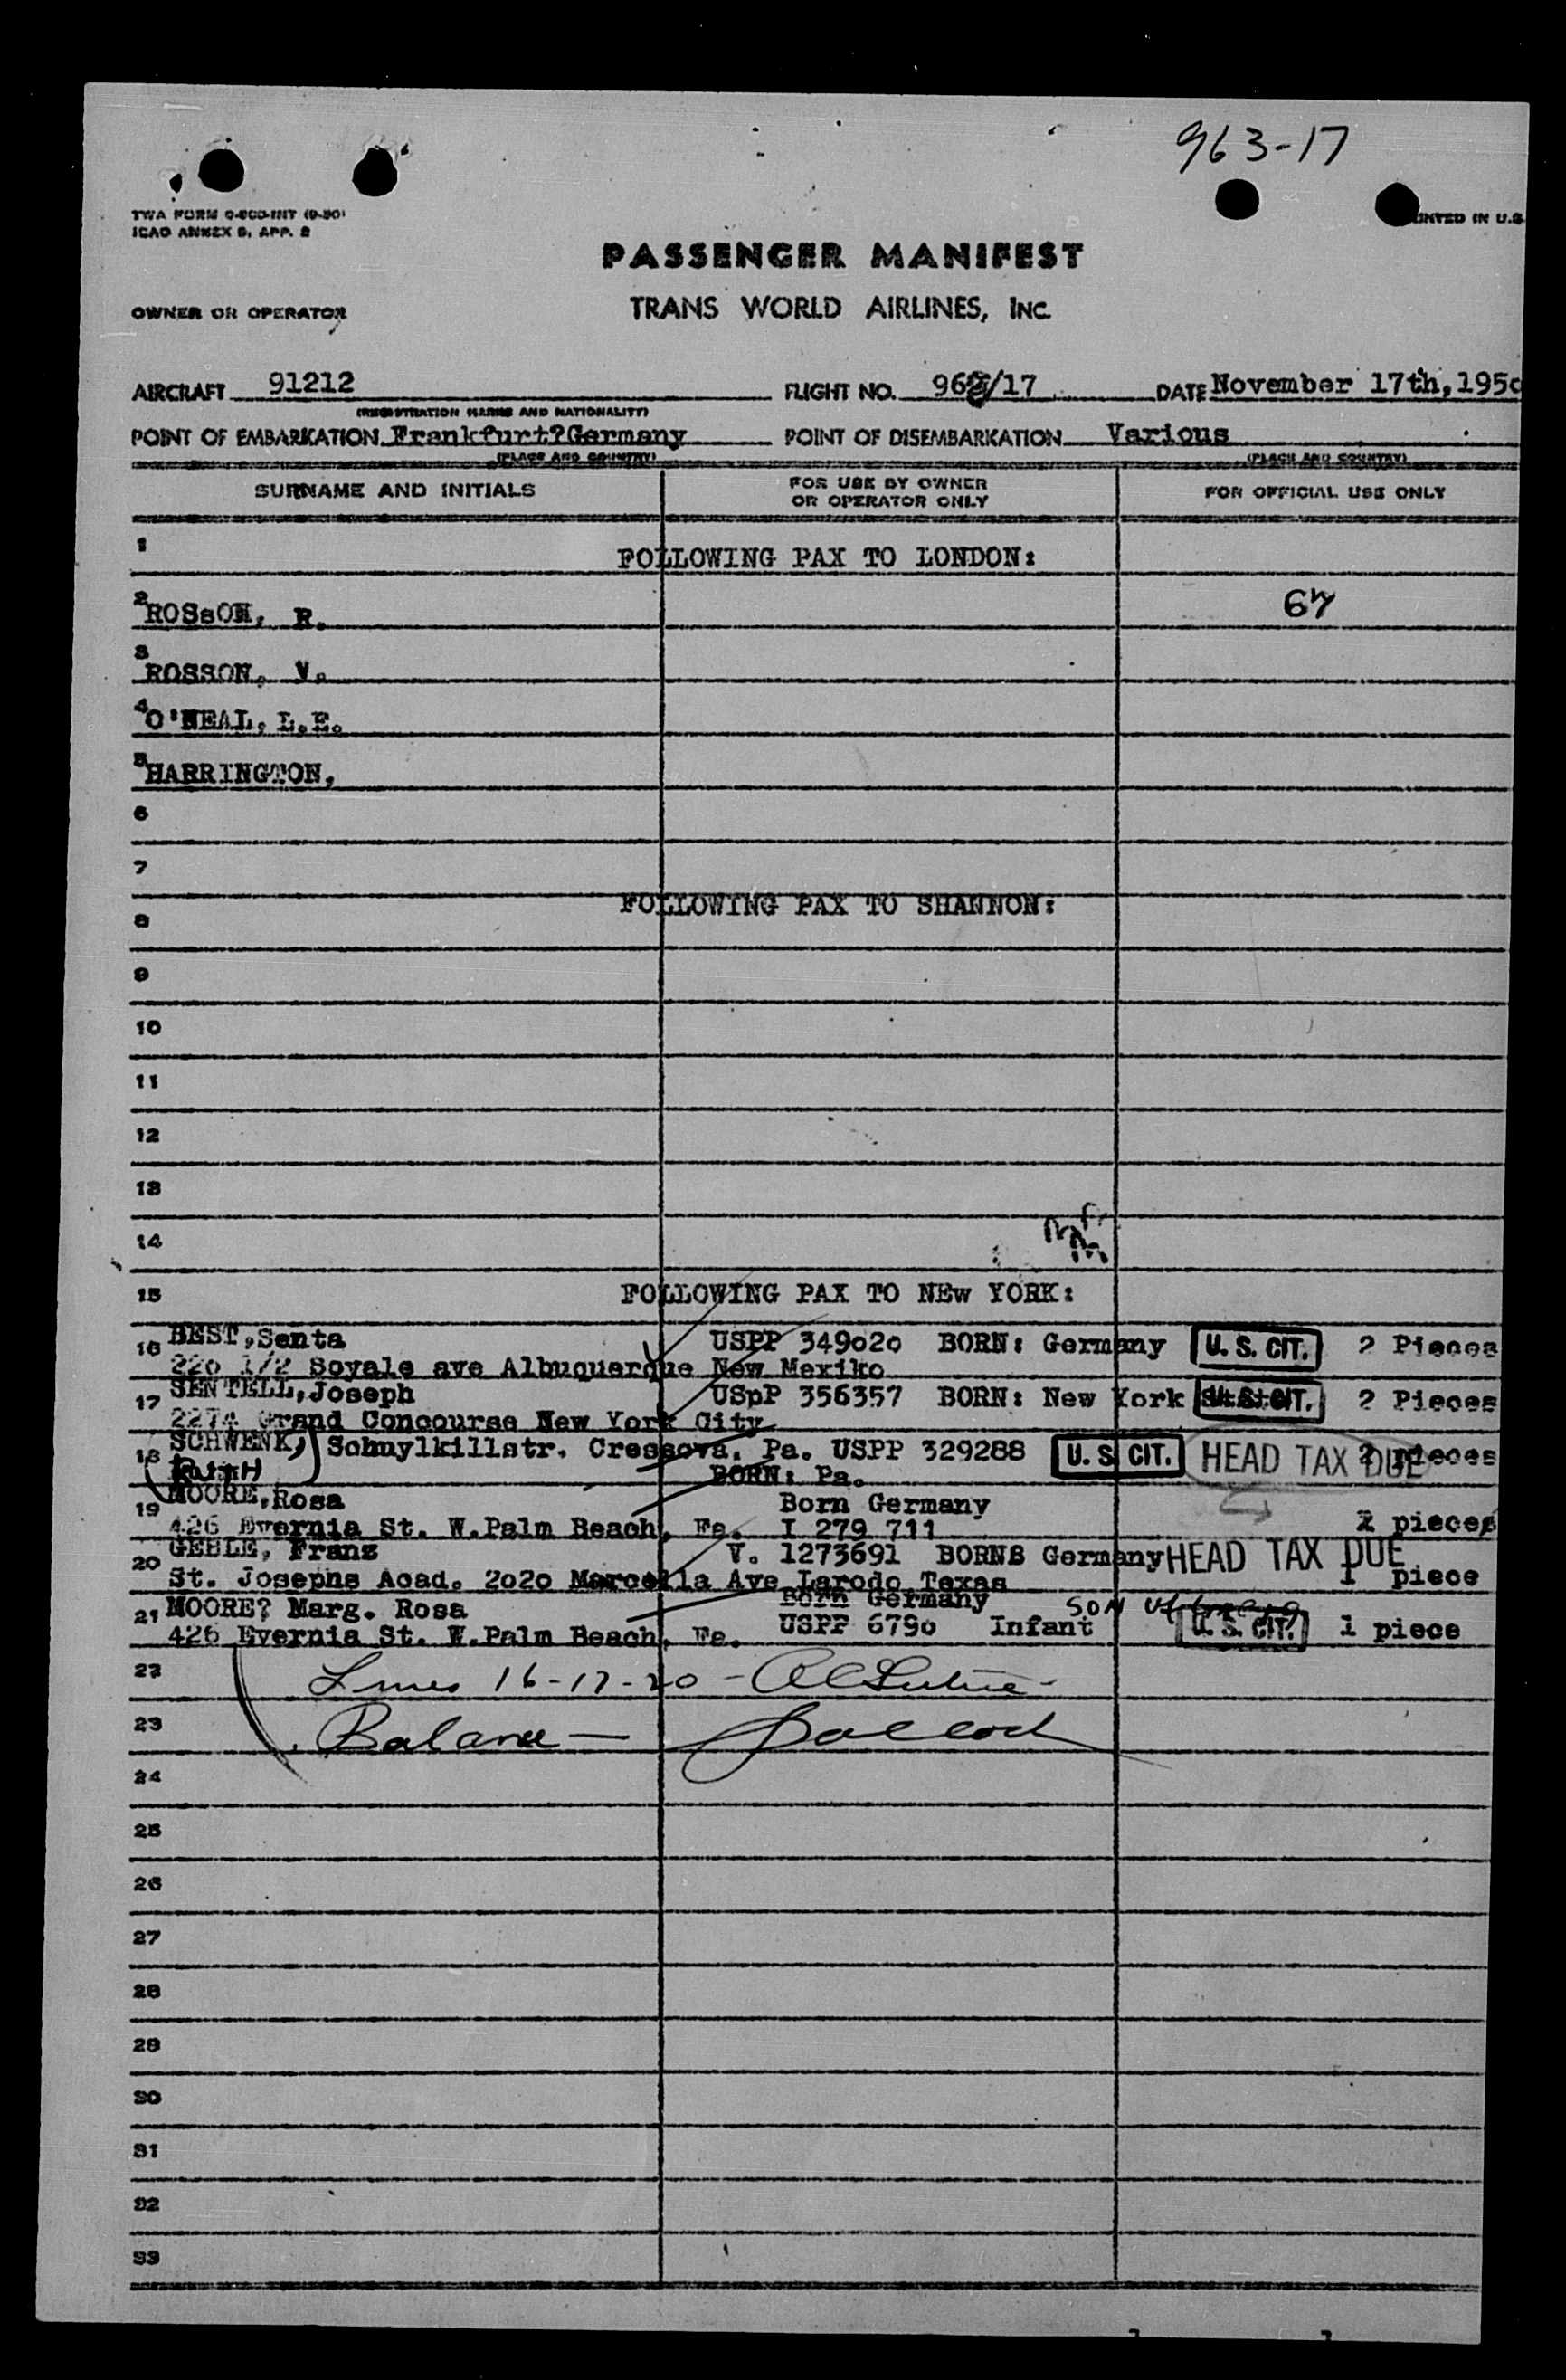 963-17
TWA FORM O-800-INT (9-50)
ICAO ANNEX 9, APP. 2
INTED IN U.S
PASSENGER MANIFEST
OWNER OR OPERATOR
TRANS WORLD AIRLINES, INC.
AIRCRAFT 91212 FLIGHT NO. 963/17 DATE November 17th,195o
(REGISTRATION MARKS AND NATIONALITY)
POINT OF EMBARKATION Frankfurt?Germany POINT OF DISEMBARKATION Various
(PLACE AND COUNTRY) (PLACE AND COUNTRY)
SURNAME AND INITIALS FOR USE BY OWNER OR OPERATOR ONLY FOR OFFICIAL USE ONLY
1 FOLLOWING PAX TO LONDON:
2 ROSsON, R.
3 ROSSON, V.
4 O'NEAL, L.E.
5 HARRINGTON,
6
7
FOLLOWING PAX TO SHANNON:
8
9
10
11
12
13
14
15 FOLLOWING PAX TO NEw YORK:
16 BEST,Senta USPP 349o2o BORN: Germany U. S. CIT. 2 Pieces
22o 1/2 Soyale ave Albuquerque New Mexiko
17 SENTELL,Joseph USpP 356357 BORN: New York U. S. CIT. 2 Pieces
2274 Grand Concourse New York City
18 SCHWENK, Schuylkillstr. Cressova, Pa. USPP 329288 U. S. CIT. HEAD TAX DUE 2 pieces
RUTH BORN: Pa.
19 MOORE,Rosa Born Germany
426 Evernia St. W.Palm Beach, Fa. I 279 711 2 pieces
20 GEBLE, Franz V. 1273691 BORNB Germany HEAD TAX DUE
St. Josephs Acad. 2o2o Marcella Ave Larodo Texas 1 piece
21 MOORE? Marg. Rosa Born Germany
426 Evernia St. W.Palm Beach, Fa. USPP 679o Infant U. S. CIT. 1 piece
22 Lines 16-17-20 -
23 Balance -
24
25
26
27
28
29
30
31
32
33